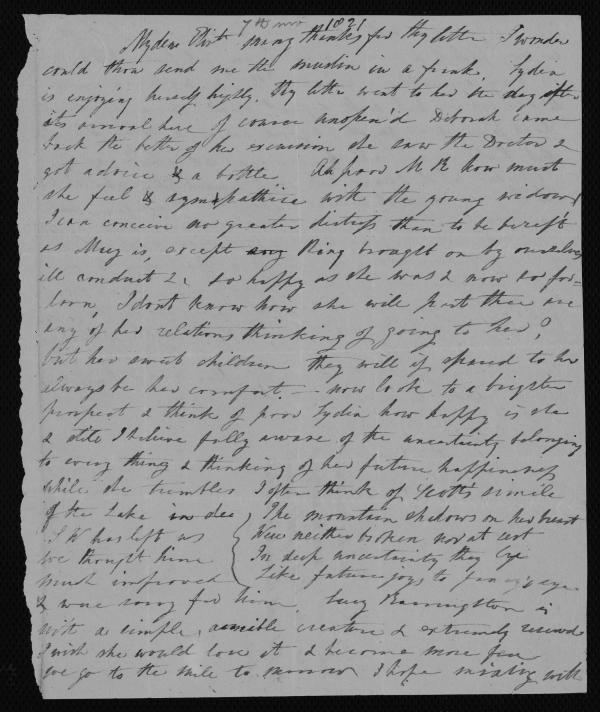 7th mo 1821
My dear many thanks for thy letter I wonder
could thou send me the muslin in a frank. Lydia
is enjoying herself highly. thy letter went to her the day after
its arrival here of course unopen'd Deborah came
back the better of her excursion she saw the Doctor &
got advice & a bottle Ah poor M R how must
she feel & sympathise with the young widow
I can conceive no greater distress than to be bereft
as Mary is, except any thing brought on by ourselves
ill conduct &c so happy as she was & now so for=
lorn, I dont know how she will part there are
any of her relations thinking of going to her?
but her sweet children they will if spared to her
always be her comfort. — now look to a brighter
prospect & think of poor Lydia how happy is she
& yet I believe fully aware of the uncertainty belonging
to every thing & thinking of her future happiness
while she trembles I often think of Scotts simile
of the Lake in dee The mountain shadows on her breast
has left us Were neither broken nor at rest
we thought him In deep uncertainty they lye
much improved Like future joys to fancy's eye
& were sorry for him. Lucy Barrington is
with a simple, amiable creature & extremely
I wish she would love it & become more free
we go to the mile to morrow I hope will